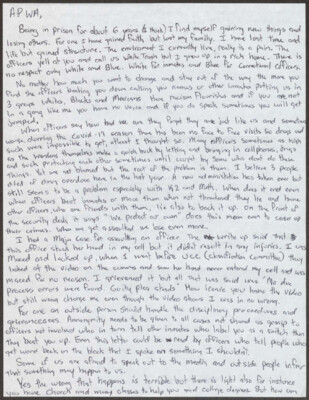 AP WA,
Being in prison for about 6 years & think I find myself gaining new things and
losing others. For one I have gained faith but lost my family. I have lost time and
life but gained structure. The environment I currently live, really is a pain. The
officers yell at you and call us White Trash but I grew up in a rich home. There is
no respect only White and Blue. White for inmates and Blue for Correctional officers.
No matter how much you want to change and stay out of the way the more you
find the officers hauling you down calling you names or other inmates putting us in
3 groups whites, Blacks and Mexicans then racism flourishes and if you are not
in a gang like me you have no voice and if you do speak sometimes you will get
jumped.
When officers say how bad we are they forget they are just like us and sometime
worse, during the Covid-19 season there has been no free to free visits so drugs and
such were impossible to get, atleast I thought so. Many officers sometimes as high
as the wardens themselves make a quick buck by letting and bringing in cellphones, drugs
and such protecting each other sometimes until caught by some who dont do these
things. Yet we are blamed but the root of the problem is them. I believe 3 people
died of drug overdose here in the last year. A new administration has taken over but
still seems to be a problem especially with K2 and Meth. When does it end even
when officers beat inmates or place them when not threatend they lie and have
other officers who are friends with them, lie also to back it up. On the front of
the security desk it says "We protect our own" does this mean even to cover up
their crimes. When we get assaulted we lose even more.
I had a Major Case for assaulting an officer. The write up said that
this officer stuck her hand in my cell but it didn't result in any injuries. I was
Maced and locked up, when I went before UCC (Classification Committee) they
looked at the video on the camera and saw her hand never entered my cell and was
maced for no reason. I grievanced it but all that was said was "No due
process errors were found. Guilty plea stands" How leave you have the video
but still wanna charge me even though the video shows I was in no wrong.
For one an outside person should handle the disciplinary proceedings and
grievances. Annonymity needs to be given to all cases not shared as gossip to
officers not involved who in turn tell other inmates who label you as a snitch then
they beat you up. Even this letter could be read by officers who tell people who
get word back on the block that I spoke on something I shouldn't.
Some of us are afraid to speak out to the media and outside people in fear
that something may happen to us.
Yes the wrong that happens is terrible but there is light also for instance
you have Church and many classes to help you and college degrees that how can